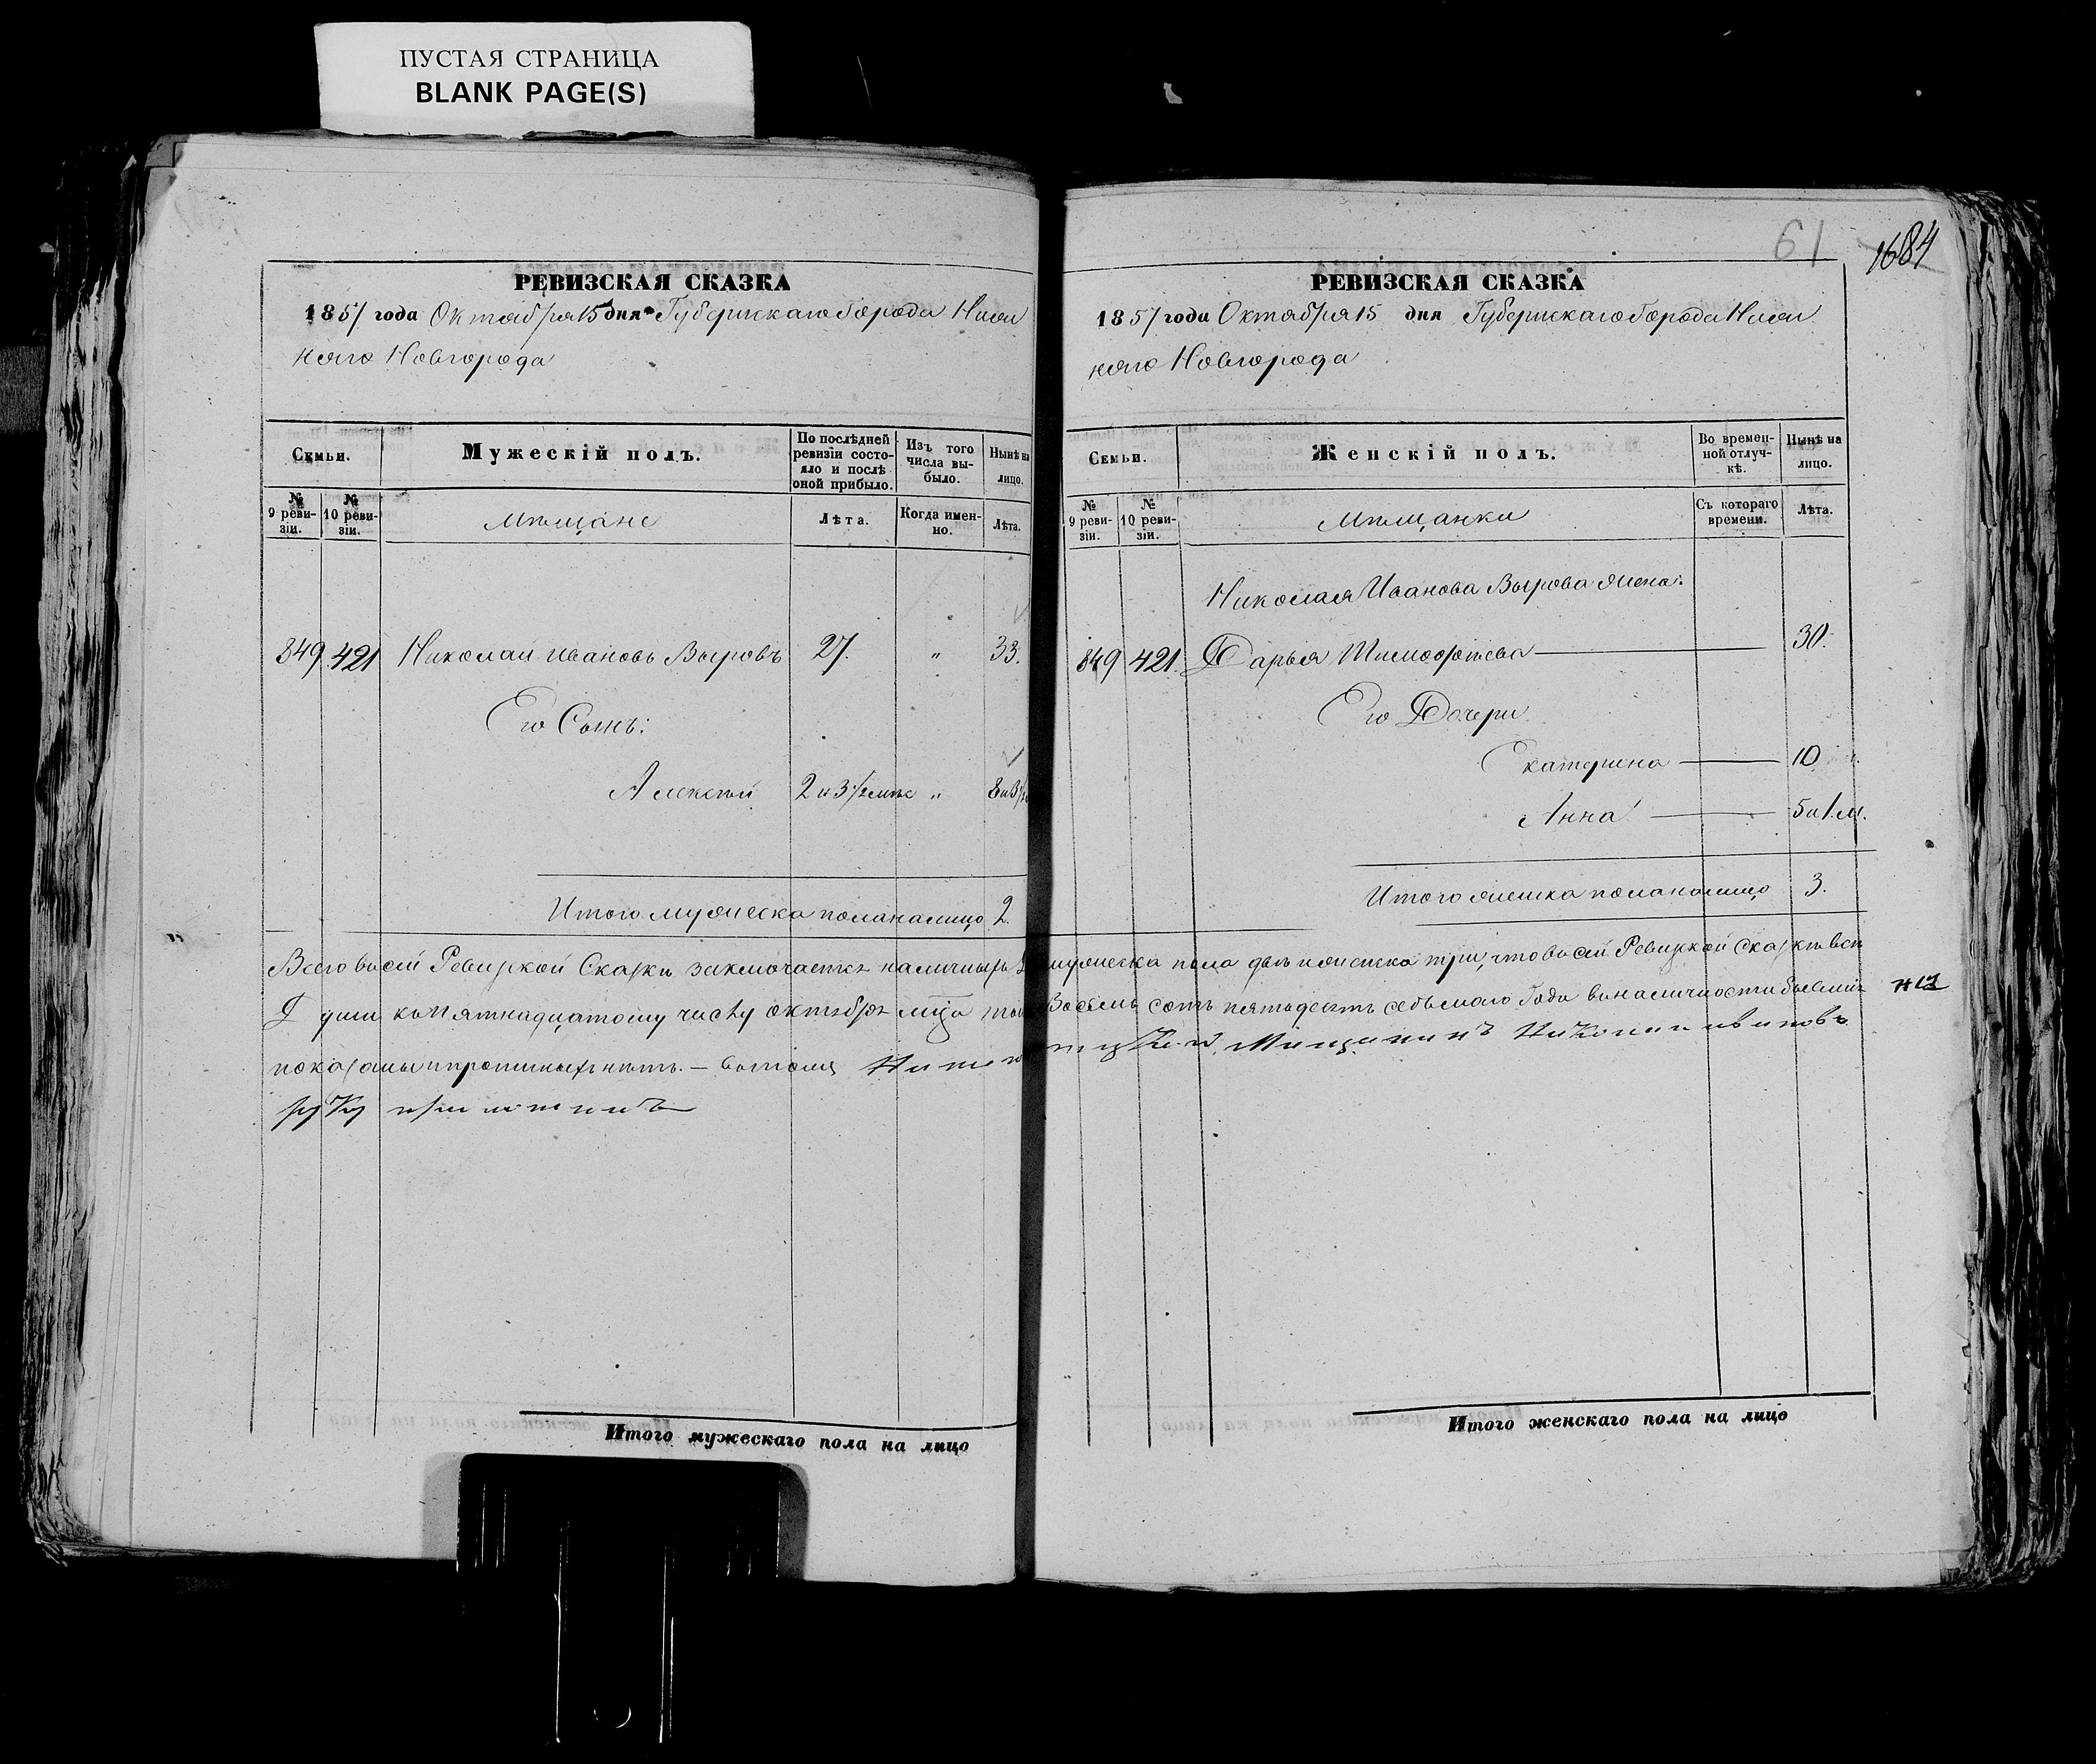 ПУСТАЯ СТРАНИЦА
BLANK PAGE(S)
РЕВИЗСКАЯ СКАЗКА
1857 года Октября 15 дня Губернскаго Города Ниж
няго Новгорода
Семьи.
Мужескій полъ.
По послѣдней ревизіи состояло и послѣ оной прибыло.
Изъ того числа выбыло.
Нынѣ на лицо.
№ 9 ревизіи.
№ 10 ревизіи.
Мѣщане
Лѣта.
Когда именно.
Лѣта.
849 421 Николай Ивановъ Выровъ 27. " 33.
Его Сынъ:
Алексѣй 2 и 3/ " 8 и 3/
Итого мужеска пола на лицо 2.
Итого мужескаго пола на лицо
61 1684
РЕВИЗСКАЯ СКАЗКА
1857 года Октября 15 дня Губернскаго Города Ниж
няго Новгорода
Семьи.
Женскій полъ.
Во временной отлучкѣ.
Нынѣ на лицо.
№ 9 ревизіи.
№ 10 ревизіи.
Мѣщанки
Съ котораго времени.
Лѣта.
Николая Иванова Вырова жена:
849 421. Дарья Тимофѣева 30.
Его Дочери
Екатерина 10
Анна 5 и 1. м.
Итого женска пола на лицо 3.
Всего въ сей Ревизской Сказкѣ заключается наличныхъ мужеска пола двѣ и женска три, что въ сей Ревизской Сказкѣ всѣ
души къ пятнадцатому числу октября Восемь сотъ пятьдесятъ седьмаго Года въ наличности бывшія
показаны и прописныхъ нѣтъ. — въ томъ Мищининъ Николай Ивановъ
руку приложилъ
Итого женскаго пола на лицо